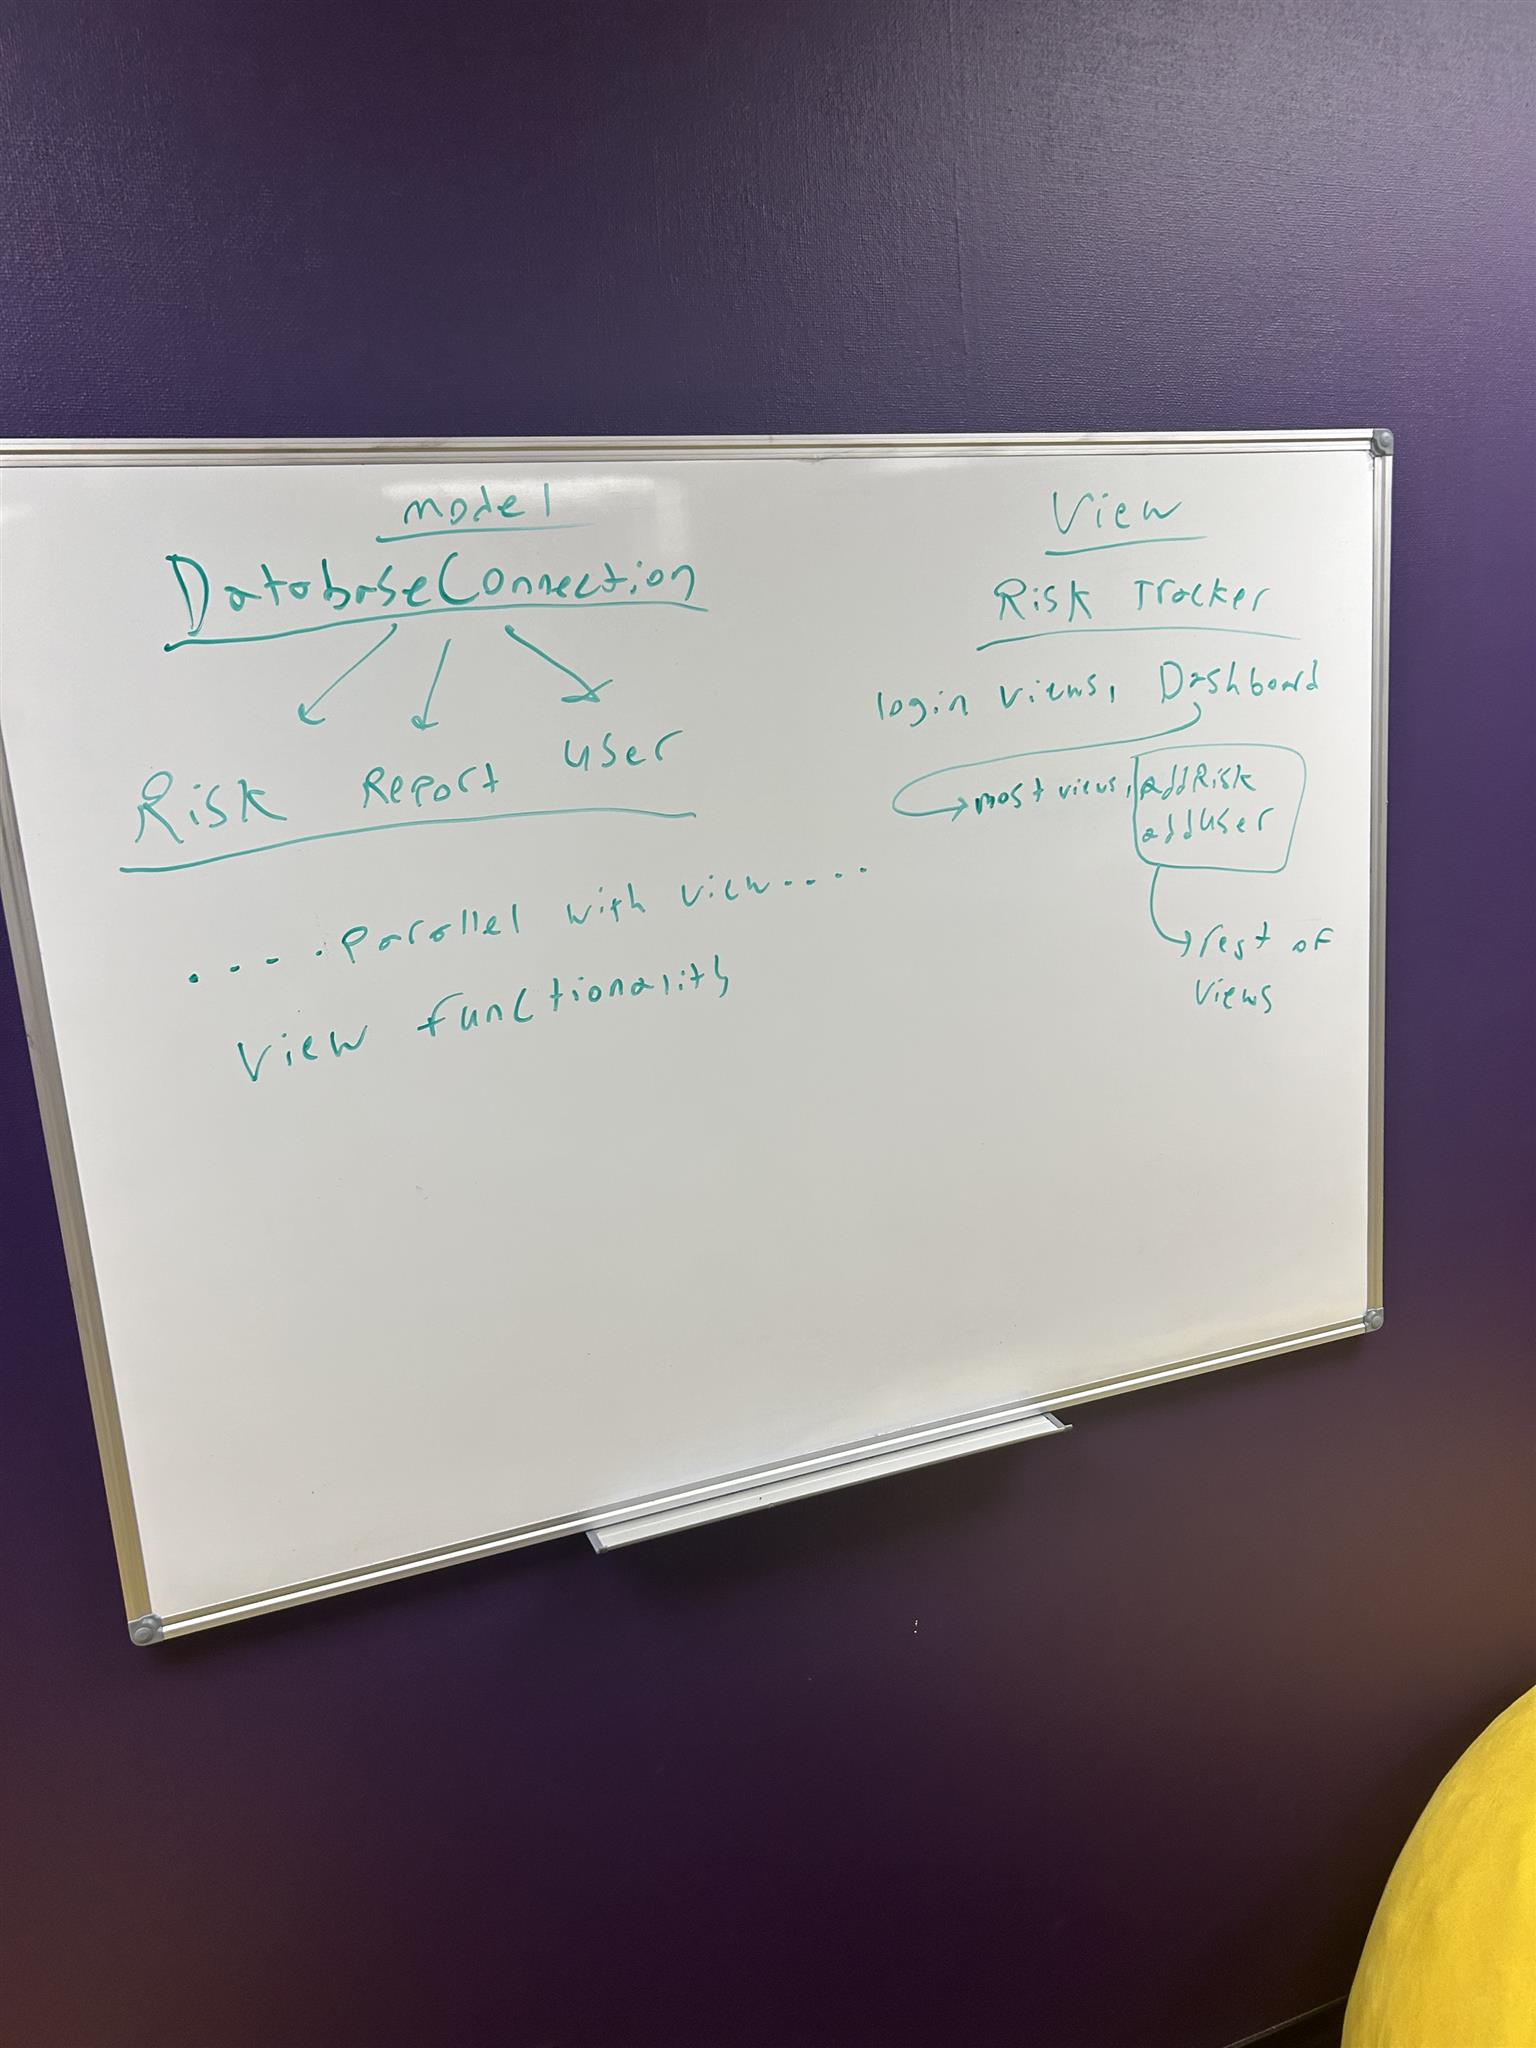 model
DatabaseConnection
Risk Report user
.....parallel with view....
View functionality
View
Risk Tracker
login views, Dashboard
most views, addRisk
addUser
rest of
views